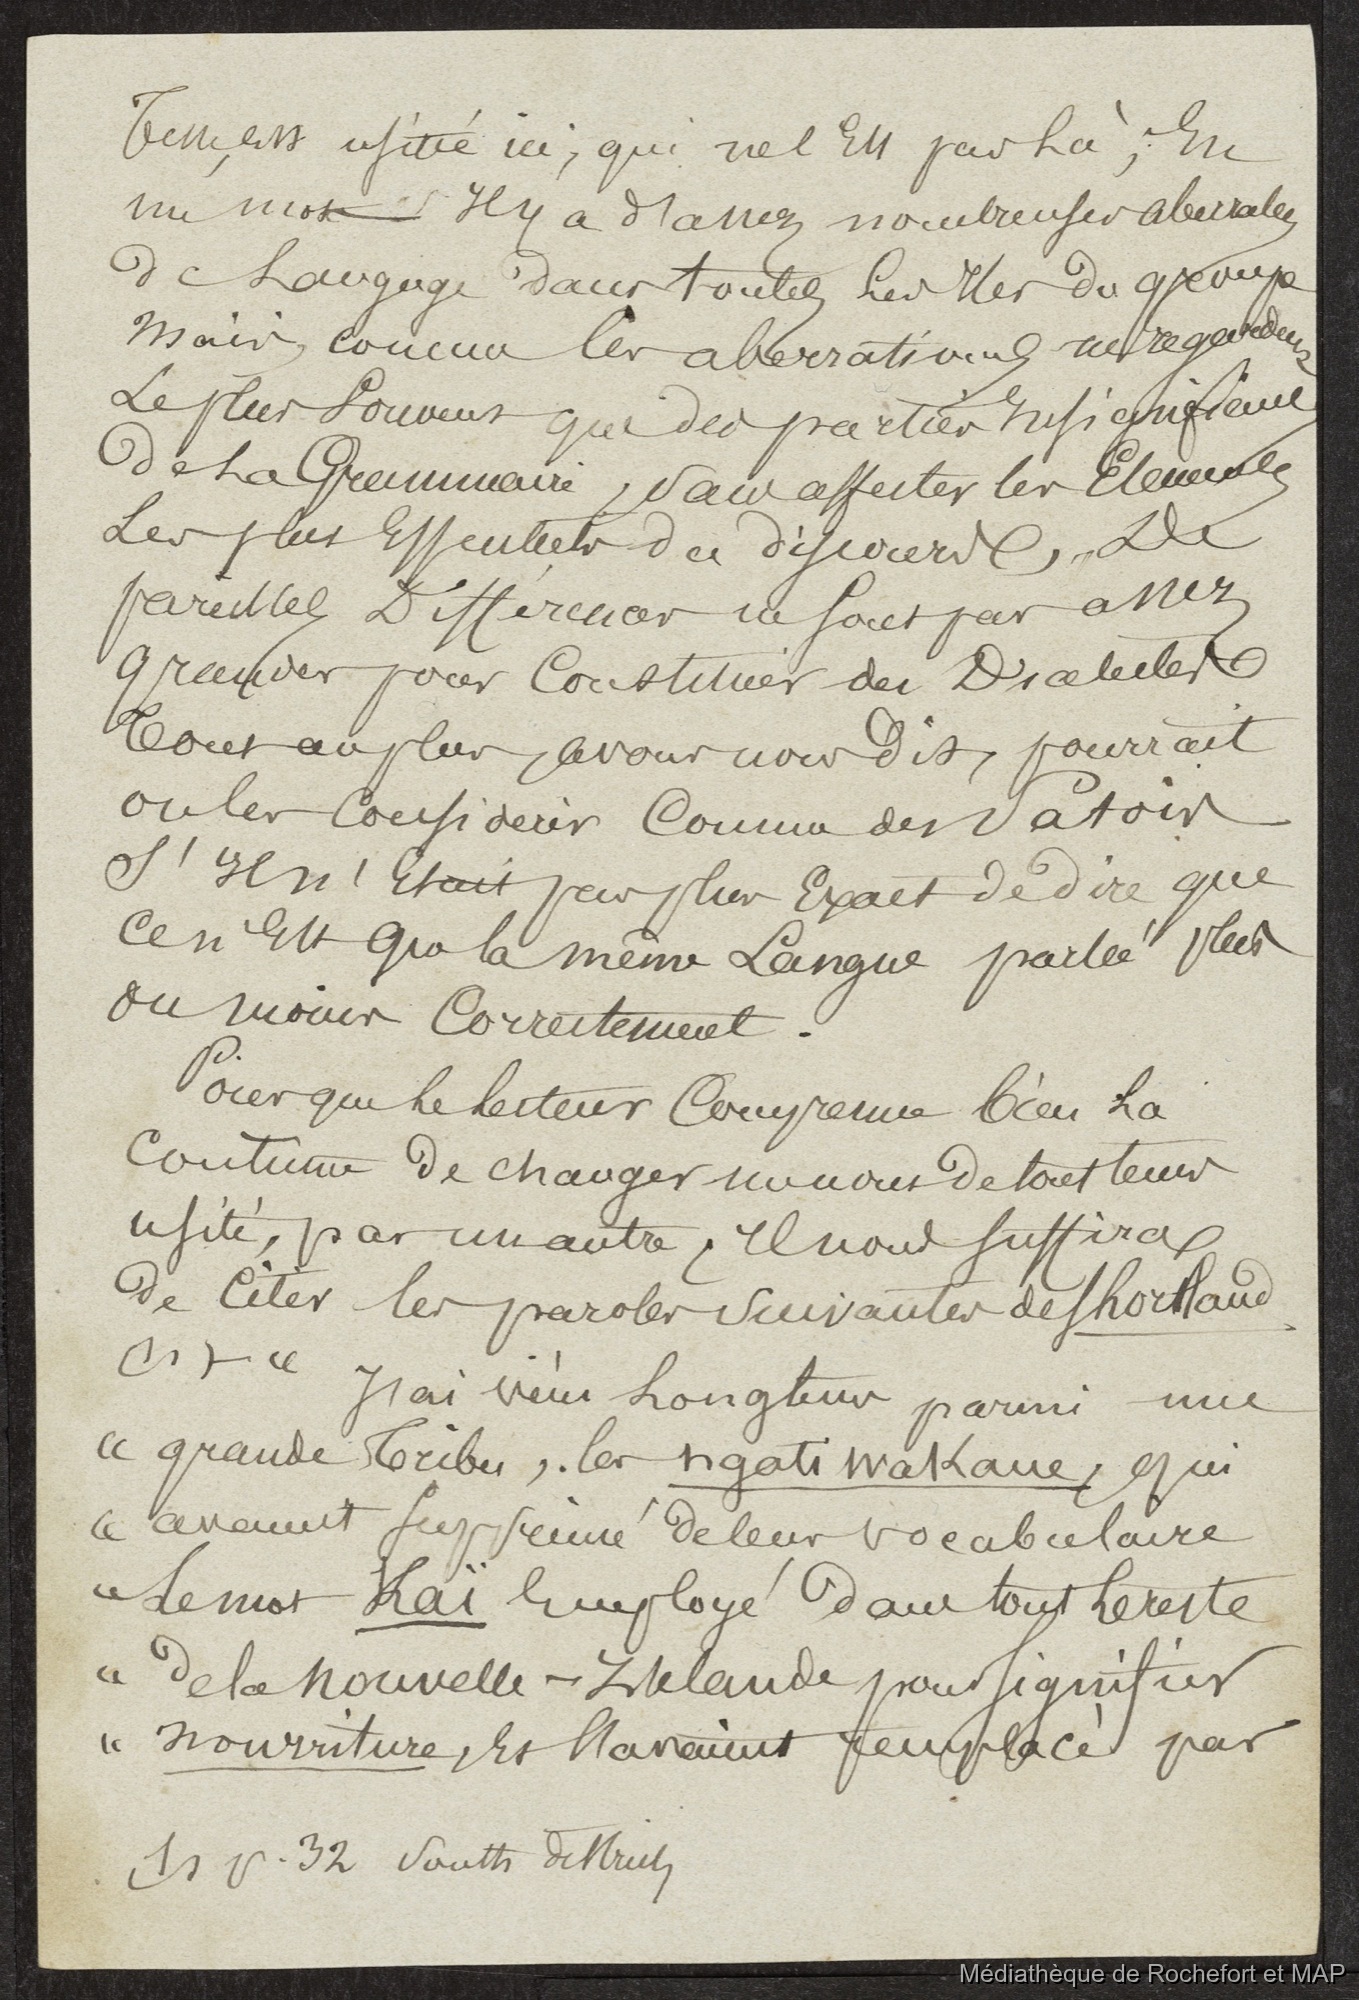 Terme, est usité ici, qui ne l'Est pas Là; En
un mot Il y a d'assez nombreuses aberrations
de Langage dans toutes Les Iles du groupe
mais, comme les aberrations ne regardent
Le plus Souvent que des parties Insignifiantes
de La Grammaire, sans affecter les Elements
Les plus Essentiels du discours, De
pareilles Différences ne sont pas assez
grandes pour Constituer des Dialectes
Tout au plus, avons nous Dit, pourrait
on les Considérer Comme des Patois
S'Il n'Etait pas plus Exact de dire que
Ce n'Est que la même Langue parlée plus
ou moins Correctement.
Pour que Le Lecteur Comprenne bien La
Coutume de changer un mot de tout temps
usité, par un autre, Il nous suffira
de Citer les paroles suivantes de Shortland
(1) « J'ai vécu Longtems parmi une
« grande Tribu, les ngati wakaue, qui
« avaient supprimé de leur vocabulaire
« Le mot Kaï Employé dans tout Le reste
« de la Nouvelle-Zélande pour signifier
« nourriture, Et l'avaient remplacé par
(1) p. 32 South districts
Médiathèque de Rochefort et MAP